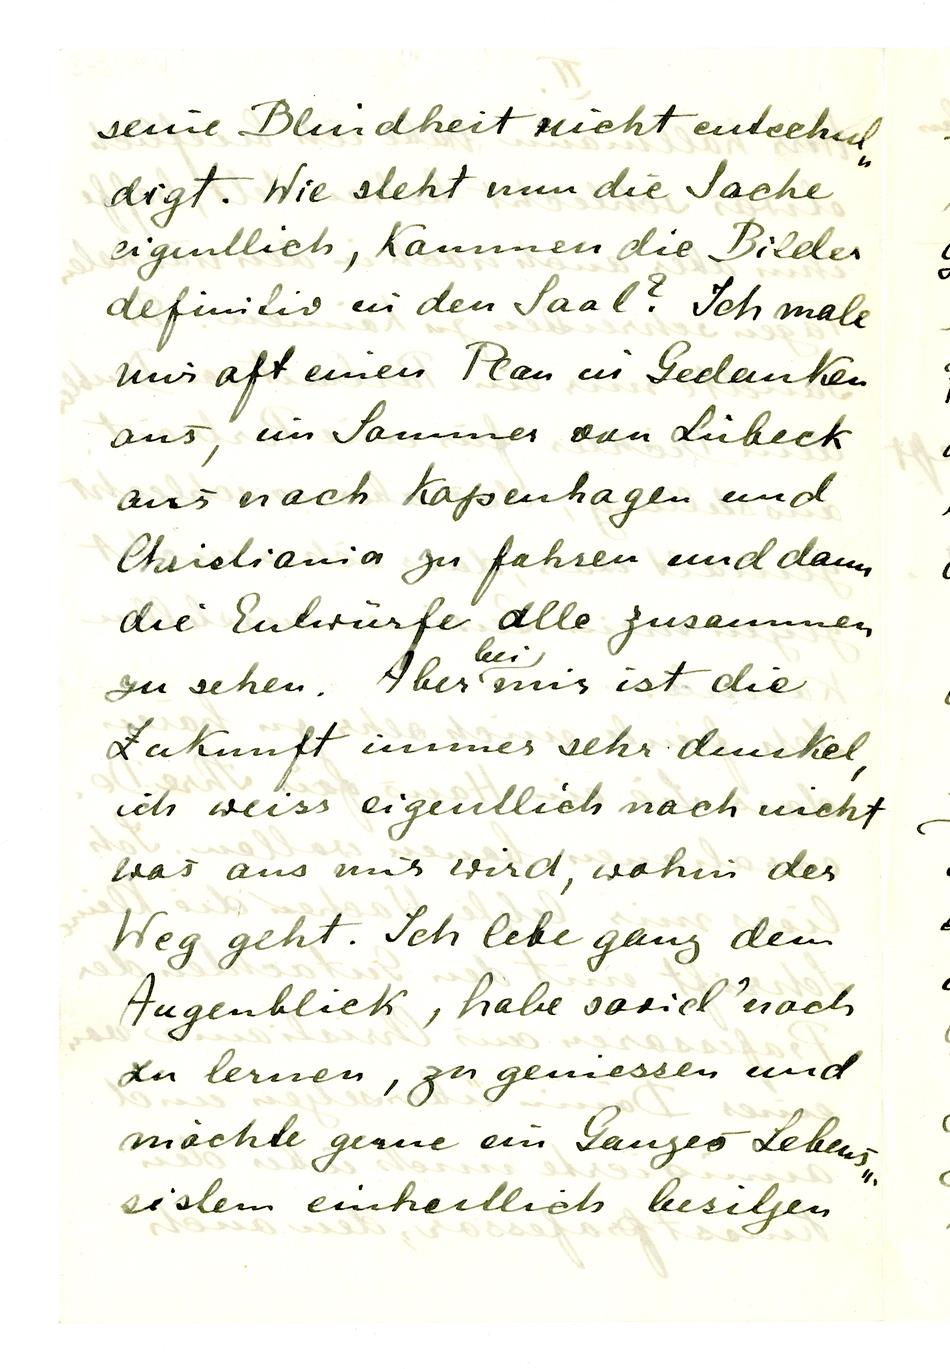 seine Blindheit nicht entschul„
digt. Wie steht nun die Sache
eigentlich, Kommen die Bilder
definitiv in den Saal? Ich male
mir oft einen Plan in Gedanken
aus, im Sommer von Lübeck
aus nach Kopenhagen und
Christiania zu fahren und dann
die Entwürfe alle zusammen
zu sehen. Aber bei mir ist die
Zukunft immer sehr dunkel,
ich weiss eigentlich noch nicht
was aus mir wird, wohin der
Weg geht. Ich lebe ganz dem
Augenblick, habe soviel noch
zu lernen, zu geniessen und
möchte gerne ein Ganzes Lebens„
sistem einheitlich besitzen